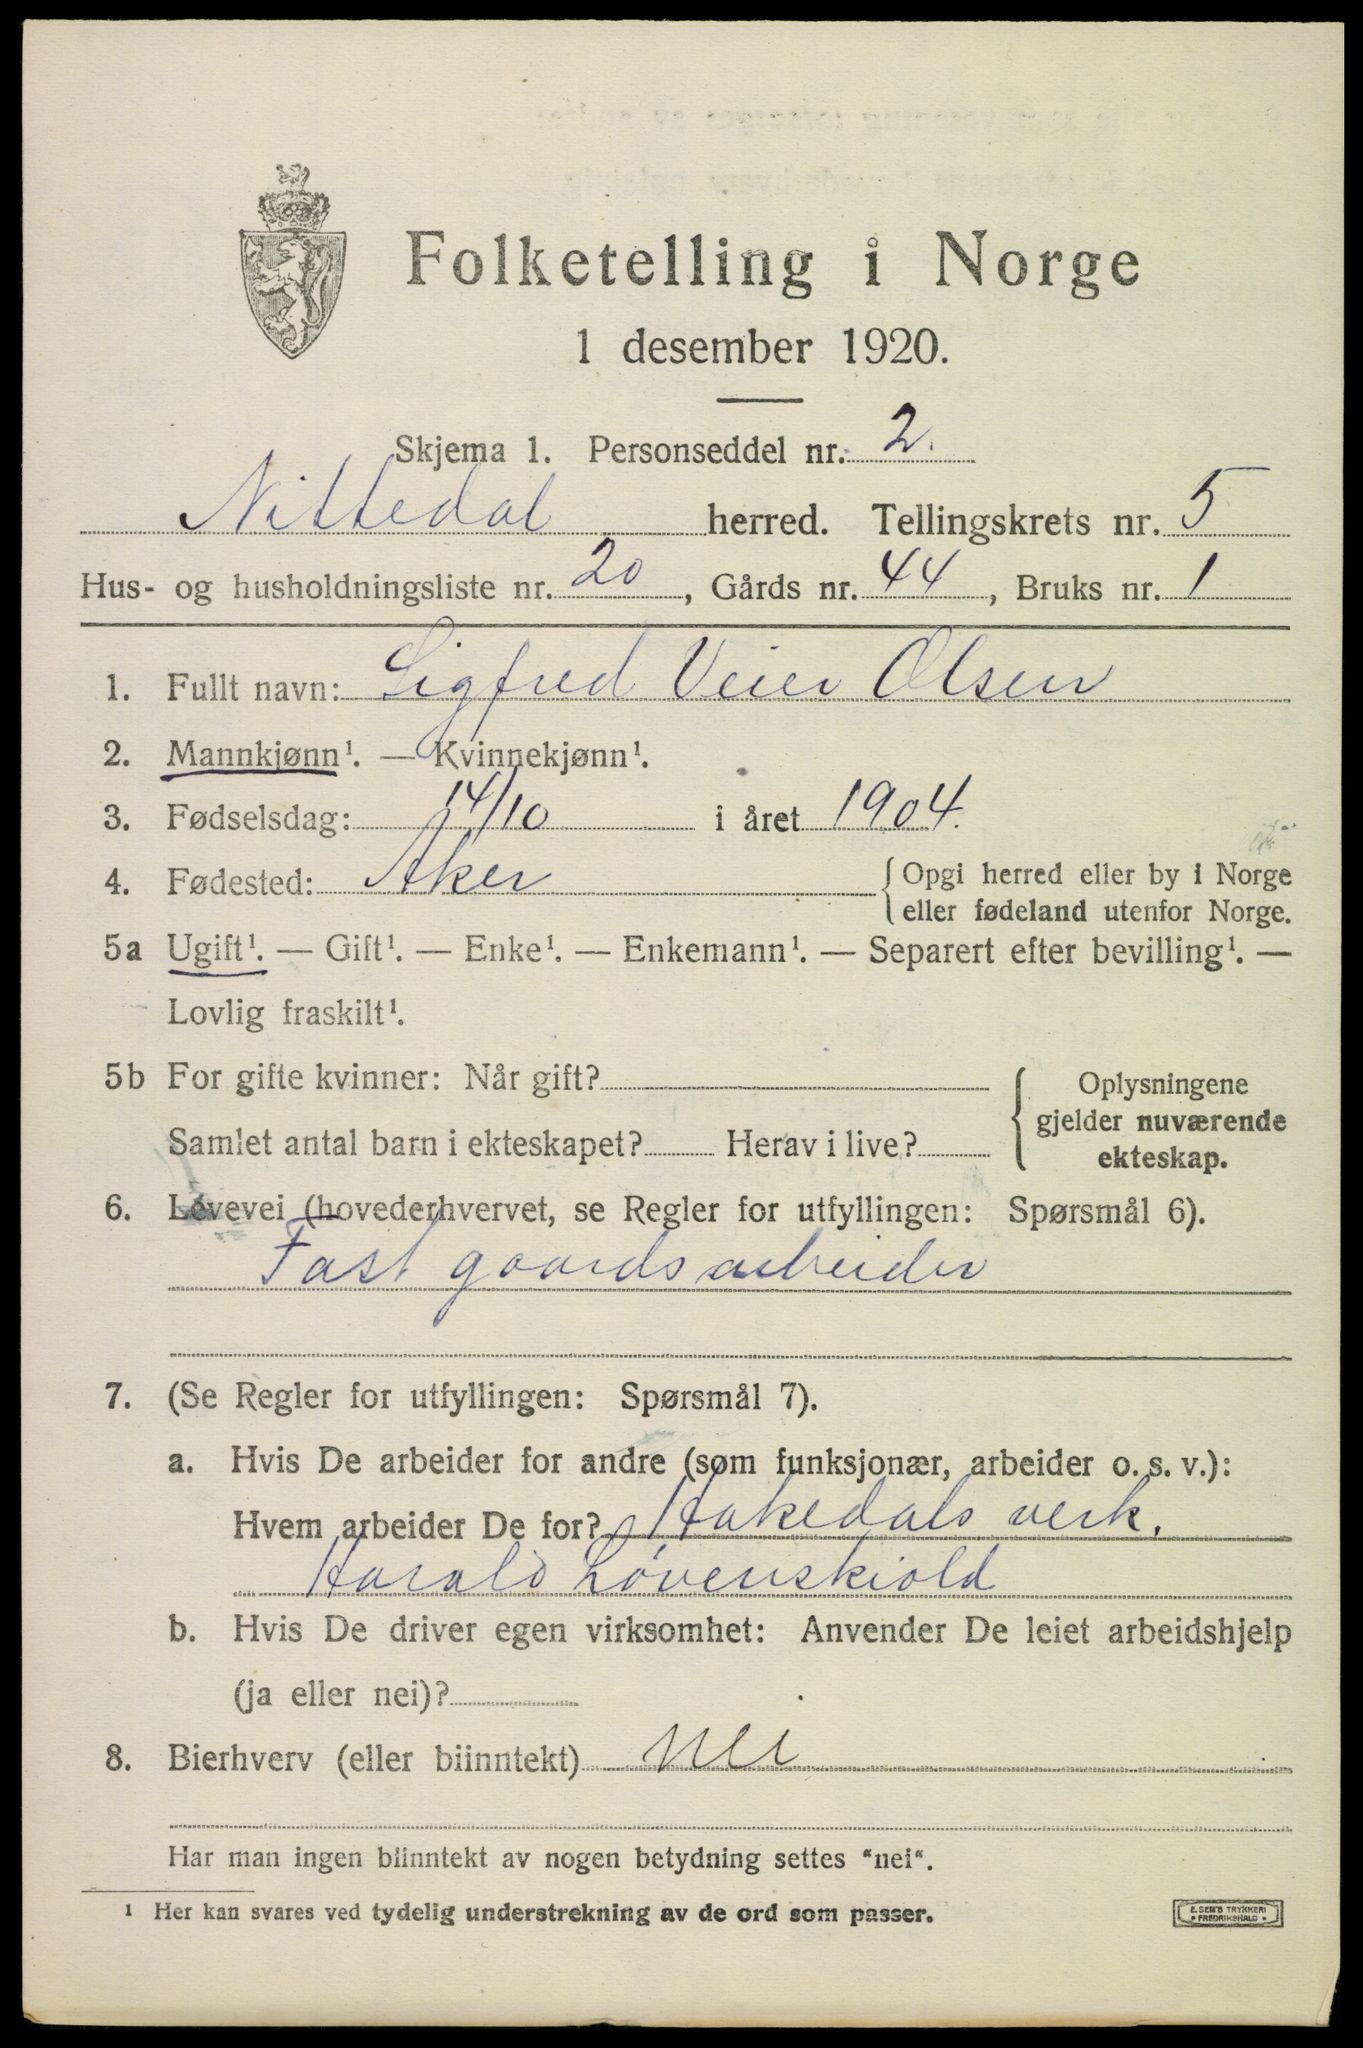 Folketelling i Norge
1 desember 1920.
Skjema 1. Personseddel nr. 2.
Nittedal herred. Tellingskrets nr. 5
Hus- og husholdningsliste nr. 20, Gårds nr. 44, Bruks nr. 1
1. Fullt navn: Sigfred Veier Olsen
2. Mannkjønn¹. — Kvinnekjønn¹.
3. Fødselsdag: 14/10 i året 1904.
4. Fødested: Aker {Opgi herred eller by i Norge
eller fødeland utenfor Norge.
5a Ugift¹. — Gift¹. — Enke¹. — Enkemann¹. — Separert efter bevilling¹. —
Lovlig fraskilt¹.
5b For gifte kvinner: Når gift? Oplysningene
gjelder nuværende
Samlet antal barn i ekteskapet? Herav i live? ekteskap.
6. Levevei (hovederhvervet, se Regler for utfyllingen: Spørsmål 6).
Fast gaardsarbeider
7. (Se Regler for utfyllingen: Spørsmål 7).
a. Hvis De arbeider for andre (som funksjonær, arbeider o. s. v.):
Hvem arbeider De for? Hakedals verk.
Harald Løvenskiold
b. Hvis De driver egen virksomhet: Anvender De leiet arbeidshjelp
(ja eller nei)?
8. Bierhverv (eller biinntekt) nei
Har man ingen biinntekt av nogen betydning settes "nei".
¹ Her kan svares ved tydelig understrekning av de ord som passer.
E. SEM'S TRYKKERI
• FREDRIKSHALD •